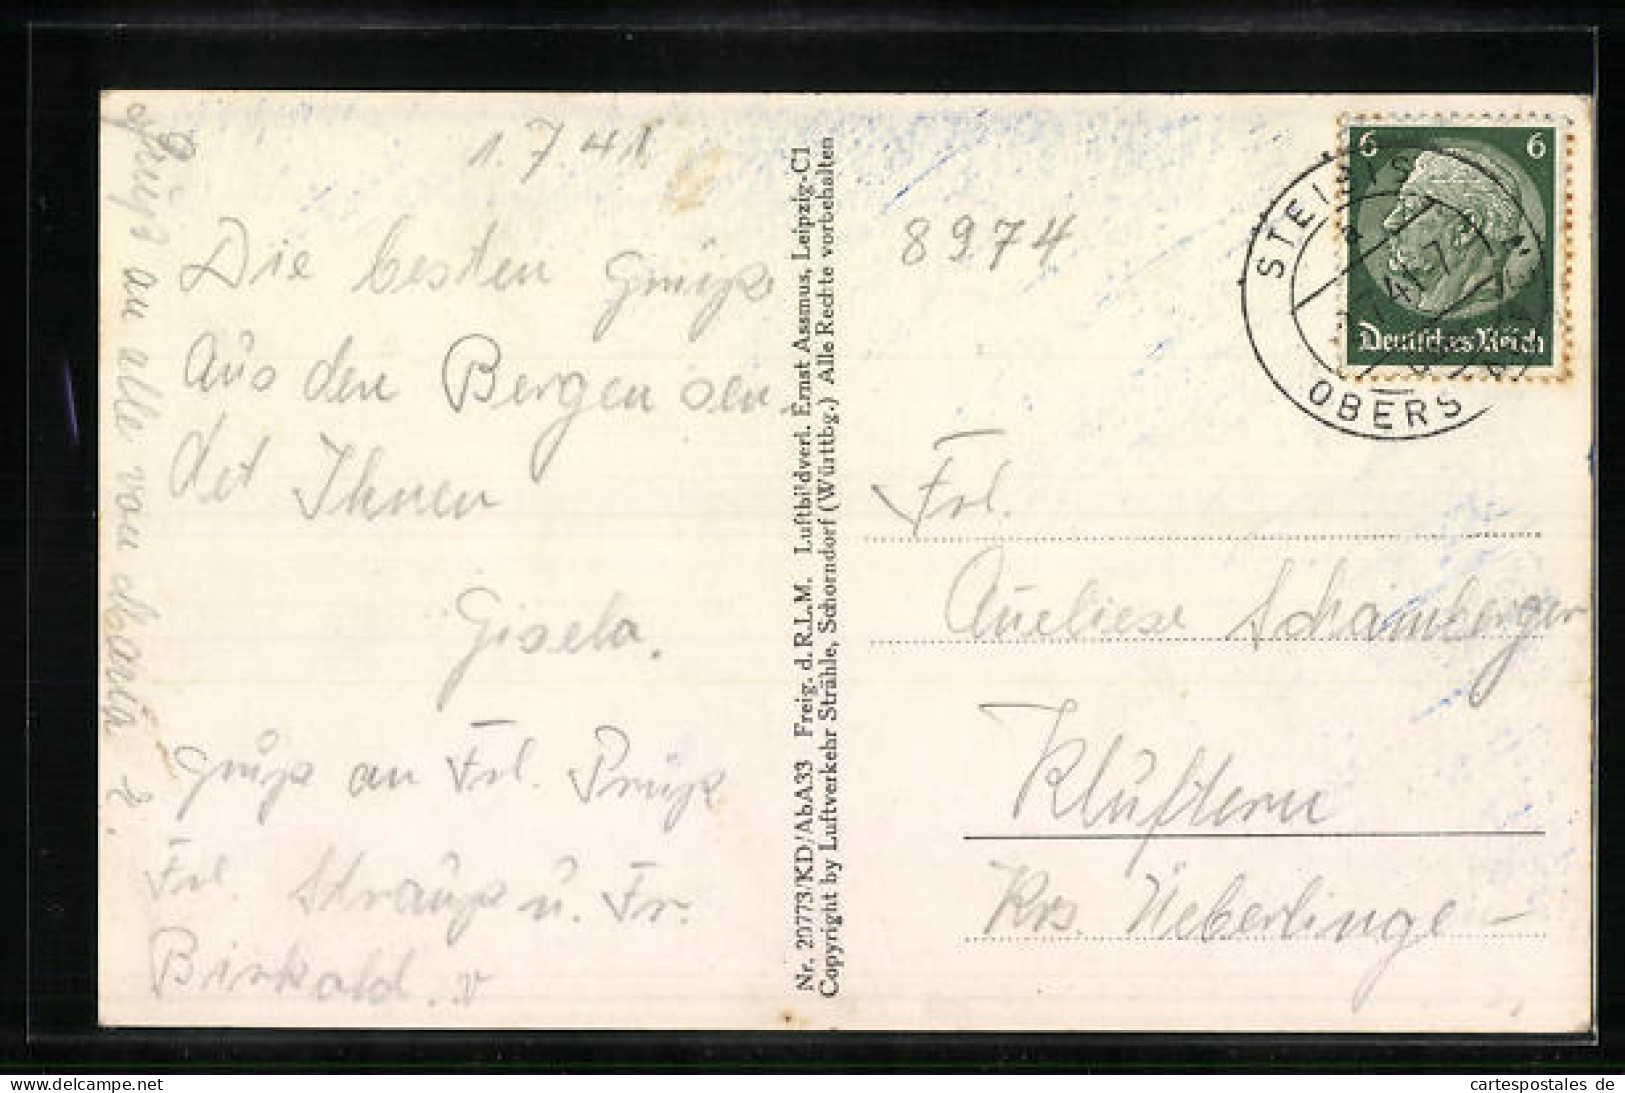 1. 7 41.
Die besten Grüße
Aus den Bergen sen-
det Ihnen
Gisela.
Grüße an Frl. Prüße
Frl. Sträuße u. Fr.
Birkald. v
Grüße an alle von Maria
Nr. 20773/KD/AbA33 Freig. d. R.L.M. Luftbildverl. Ernst Assmus, Leipzig-C1
Copyright by Luftverkehr Strähle, Schorndorf (Württbg.) Alle Rechte vorbehalten
8974
6 6
Deutsches Reich
STEIBIS
OBERS
41-7
Frl.
Aneliese Schamberger
Kluftern
Krs. Überlinge-
cartespostales.de